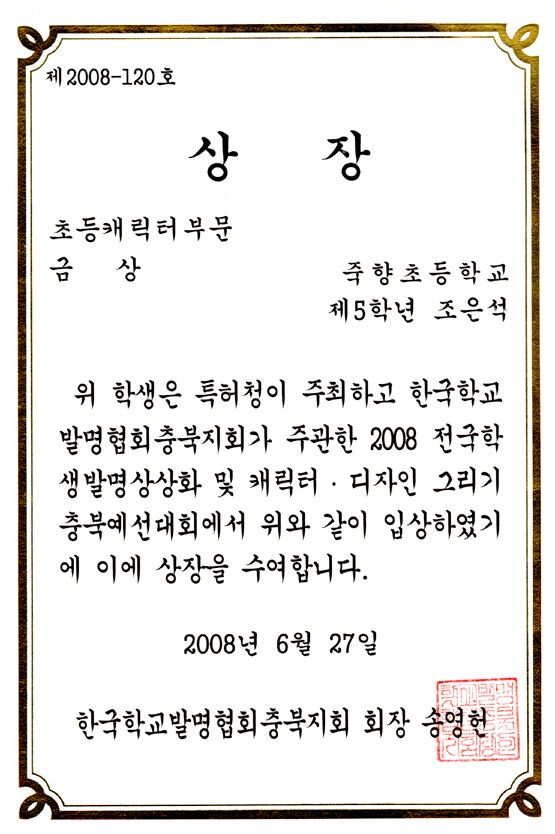 제2008-120호
상 장
초등캐릭터부문
금 상
죽향초등학교
제5학년 조은석
위 학생은 특허청이 주최하고 한국학교
발명협회충북지회가 주관한 2008 전국학
생발명상상화 및 캐릭터 · 디자인 그리기
충북예선대회에서 위와 같이 입상하였기
에 이에 상장을 수여합니다.
2008년 6월 27일
한국학교발명협회충북지회 회장 송영헌